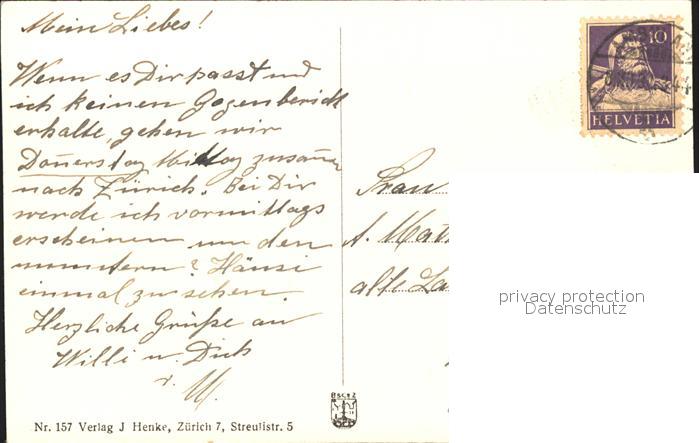 Mein Liebes!
Wenn es Dir passt und
ich keinen Gegenbericht
erhalte, gehen wir
Donnerstag Mittag zusamen
nach Zürich. Bei Dir
werde ich vormittags
erscheinen um den
muntern? Hänsi
einmal zu sehen.
Herzliche Grüße an
Willi u. Dich
v. M.
Nr. 157 Verlag J Henke, Zürich 7, Streulistr. 5
10
HELVETIA
Frau
A. Mat
alte La
privacy protection
Datenschutz